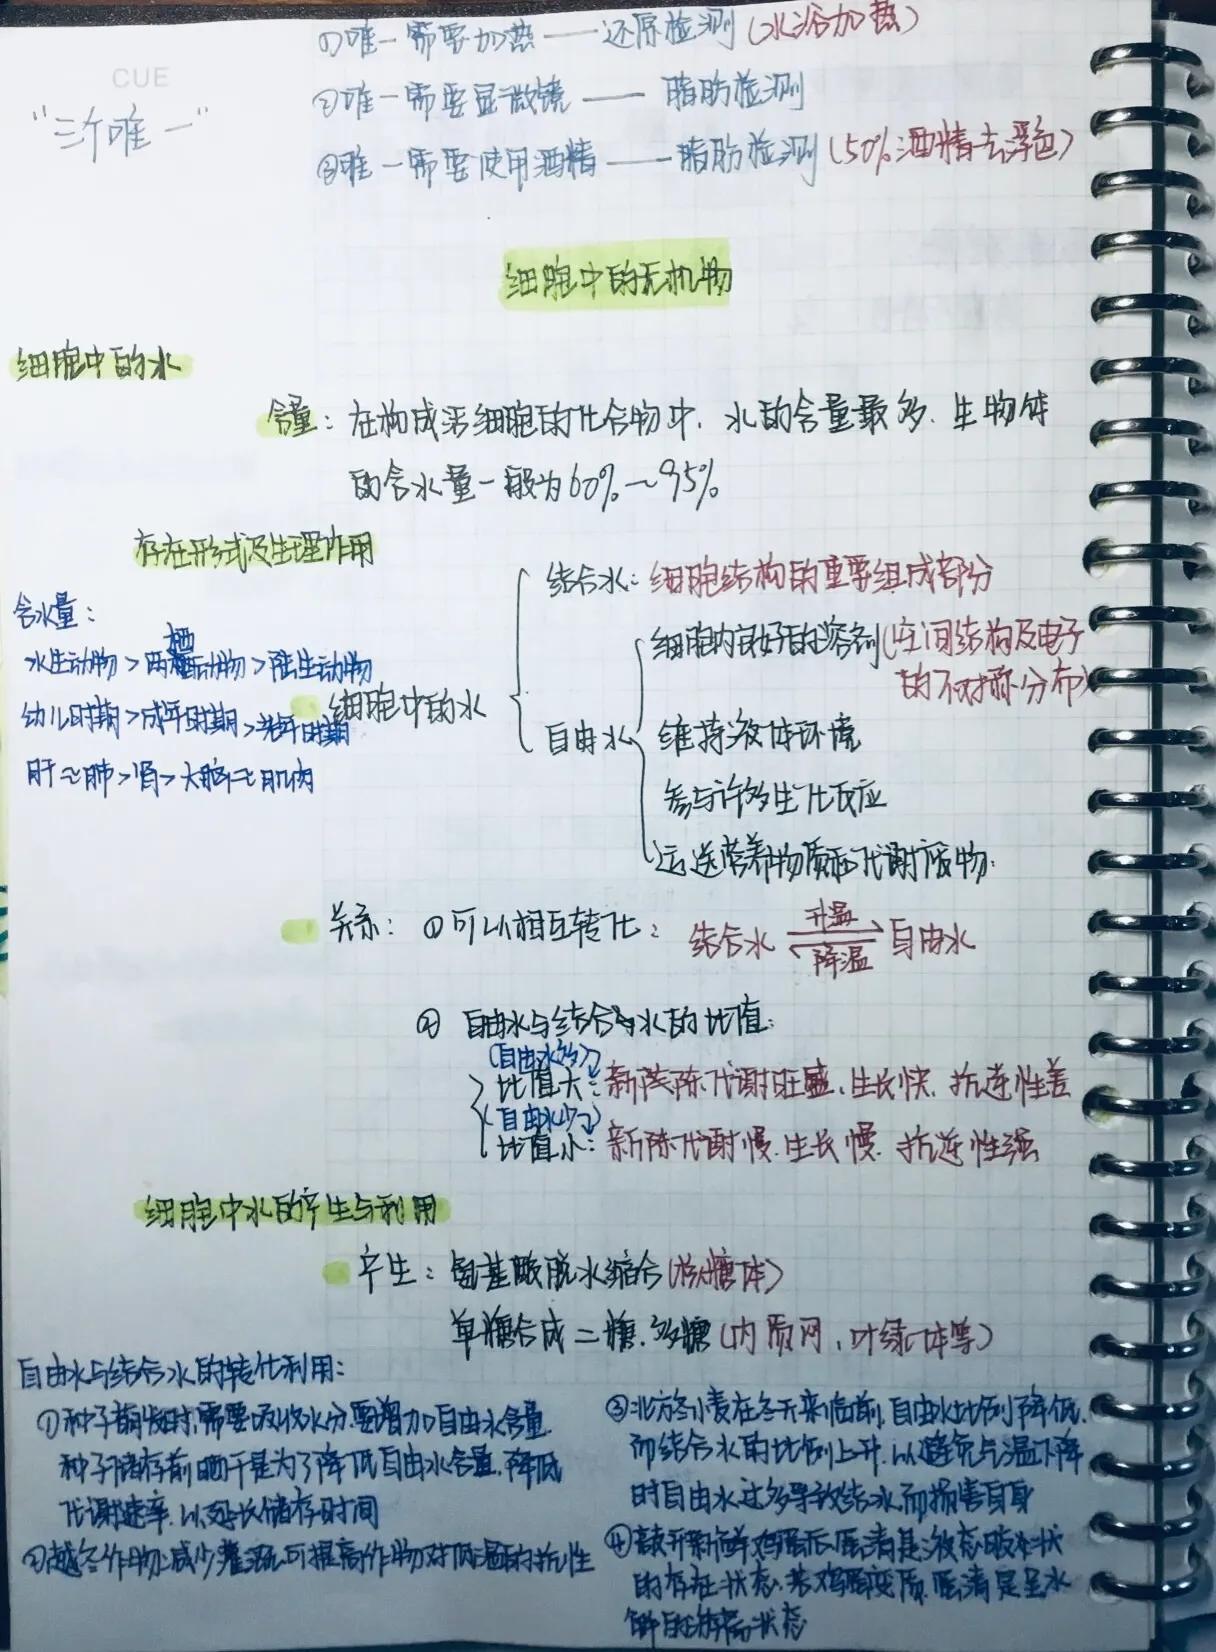 ①唯一需要加热——还原检测(水浴加热)
CUE
②唯一需要显微镜——脂肪检测
"三个唯一"
③唯一需要使用酒精——脂肪检测(50%酒精去浮色)
细胞中的无机物
细胞中的水
含量：在构成活细胞的化合物中，水的含量最多，生物体
的含水量一般为60%~95%
存在形式及生理作用
结合水：细胞结构的重要组成部分
含水量：
细胞内良好的溶剂(空间结构及电子
的不对称分布)
水生动物>两栖动物>陆生动物
幼儿时期>成年时期>老年时期
细胞中的水
自由水
维持液体环境
肝≈肺>肾>大脑≈肌肉
参与许多生化反应
运送营养物质和代谢废物.
关系：①可以相互转化：结合水 升温 降温 自由水
② 自由水与结合水的比值：
(自由水多)
比值大：新陈代谢旺盛、生长快、抗逆性差
(自由水少)
比值小：新陈代谢慢、生长慢、抗逆性强
细胞中水的产生与利用
产生：氨基酸脱水缩合(核糖体)
单糖合成二糖、多糖(内质网，叶绿体等)
自由水与结合水的转化利用：
①种子萌发时，需要吸收水分，要增加自由水含量
种子储存前晒干是为了降低自由水含量，降低
代谢速率，以延长储存时间
②越冬作物减少灌溉可提高作物对低温的抗性
③北方冬小麦在冬天来临前，自由水比例降低，
而结合水的比例上升，以避免气温下降
时自由水过多导致结冰而损害自身
④敲开新鲜鸡蛋后蛋清是液态胶状
的存在状态，若鸡蛋变质，蛋清是呈水